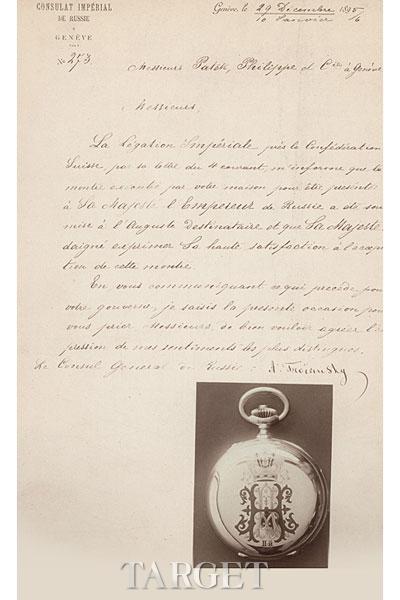 CONSULAT IMPÉRIAL
DE RUSSIE
À
GENÈVE
No 273
Genève, le 29 Décembre 1895/6
10 Janvier
Messieurs Patek, Philippe et Cie à Genève
Messieurs,
La Légation Impériale près la Confédération
Suisse, par sa lettre du 4 courant, m'informe que la
montre exécutée par votre maison pour être présentée
à Sa Majesté l'Empereur de Russie a été sou-
mise à l'Auguste Destinataire et que Sa Majesté a
daigné exprimer Sa haute satisfaction à l'exécu-
tion de cette montre.
En vous communiquant ce qui précède pour
votre gouverne, je saisis la présente occasion pour
vous prier Messieurs, de bien vouloir agréer l'ex-
pression de mes sentiments les plus distingués.
Le Consul Général de Russie:
TARGET